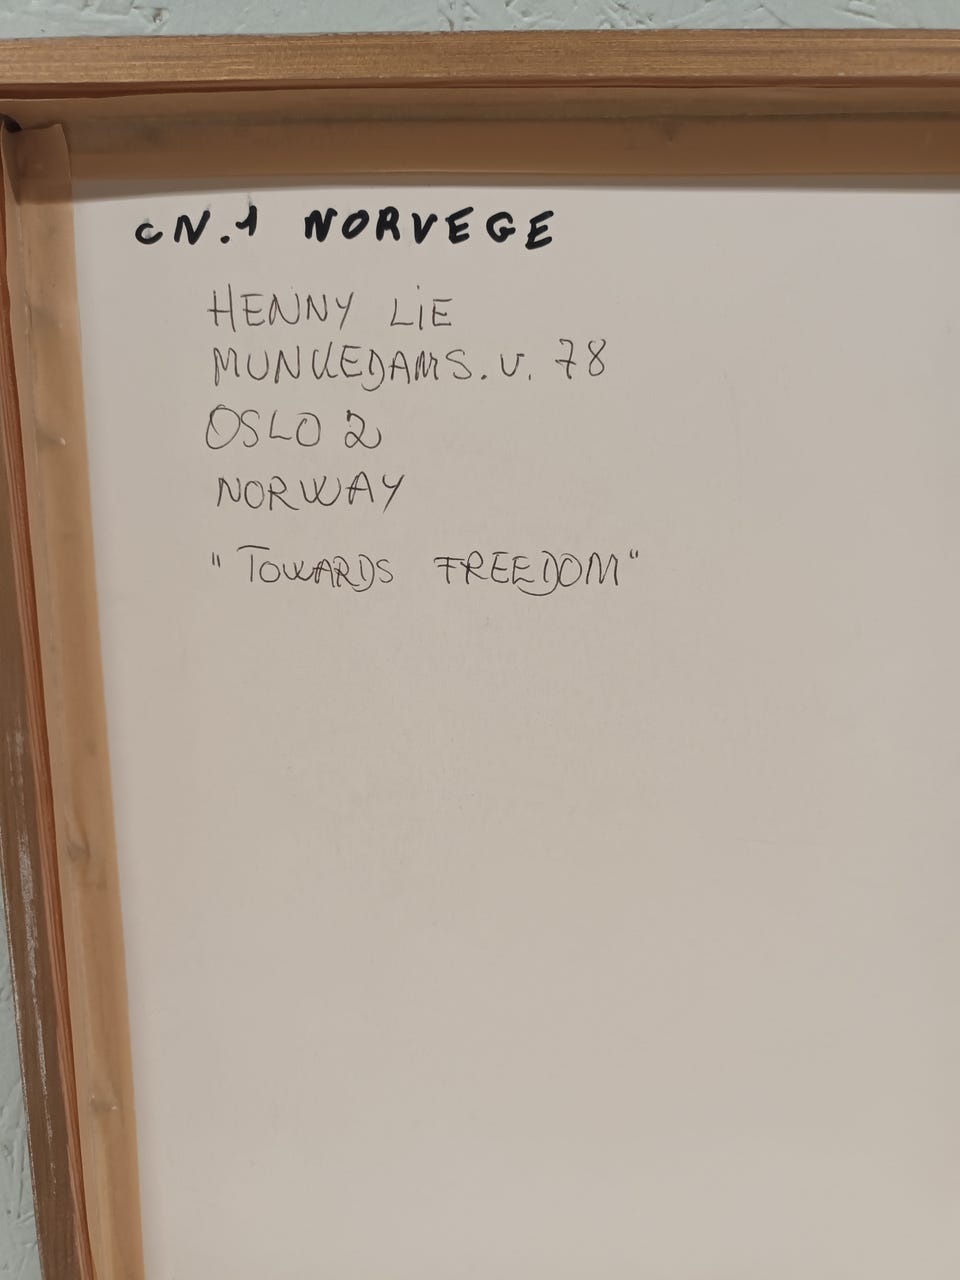 CN.1 NORVEGE
HENNY LIE
MUNKEDAMS.V. 78
OSLO 2
NORWAY
"TOWARDS FREEDOM"